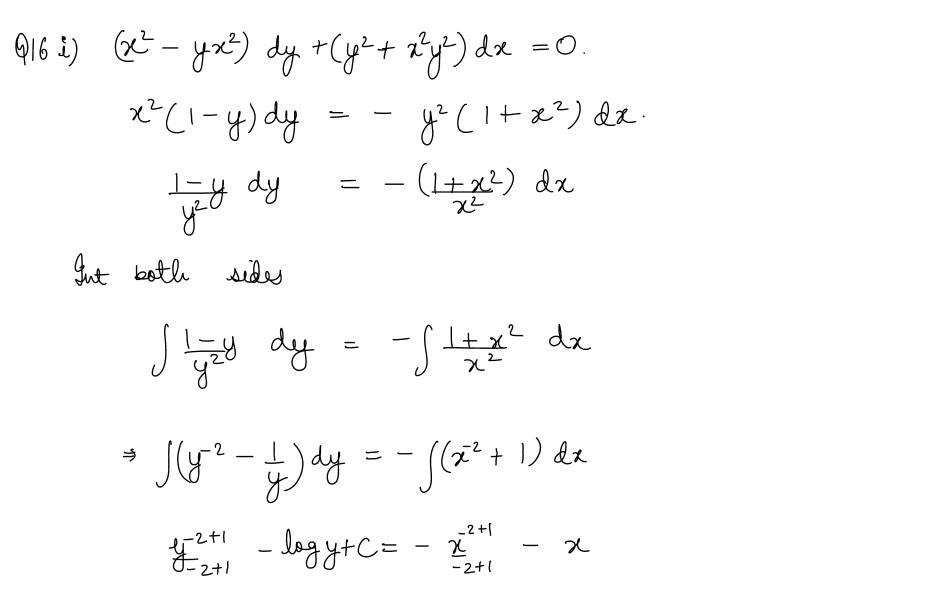 Q16 i) (x² - yx²) dy + (y² + x²y²) dx = 0.
x² (1 - y) dy = - y² (1 + x²) dx.
(1-y)/y² dy = - (1+x²)/x² dx
Int both sides
∫ (1-y)/y² dy = - ∫ (1+x²)/x² dx
⇒ ∫(y⁻² - 1/y) dy = - ∫(x⁻² + 1) dx
y⁻²⁺¹/-2+1 - log y + C = - x⁻²⁺¹/-2+1 - x